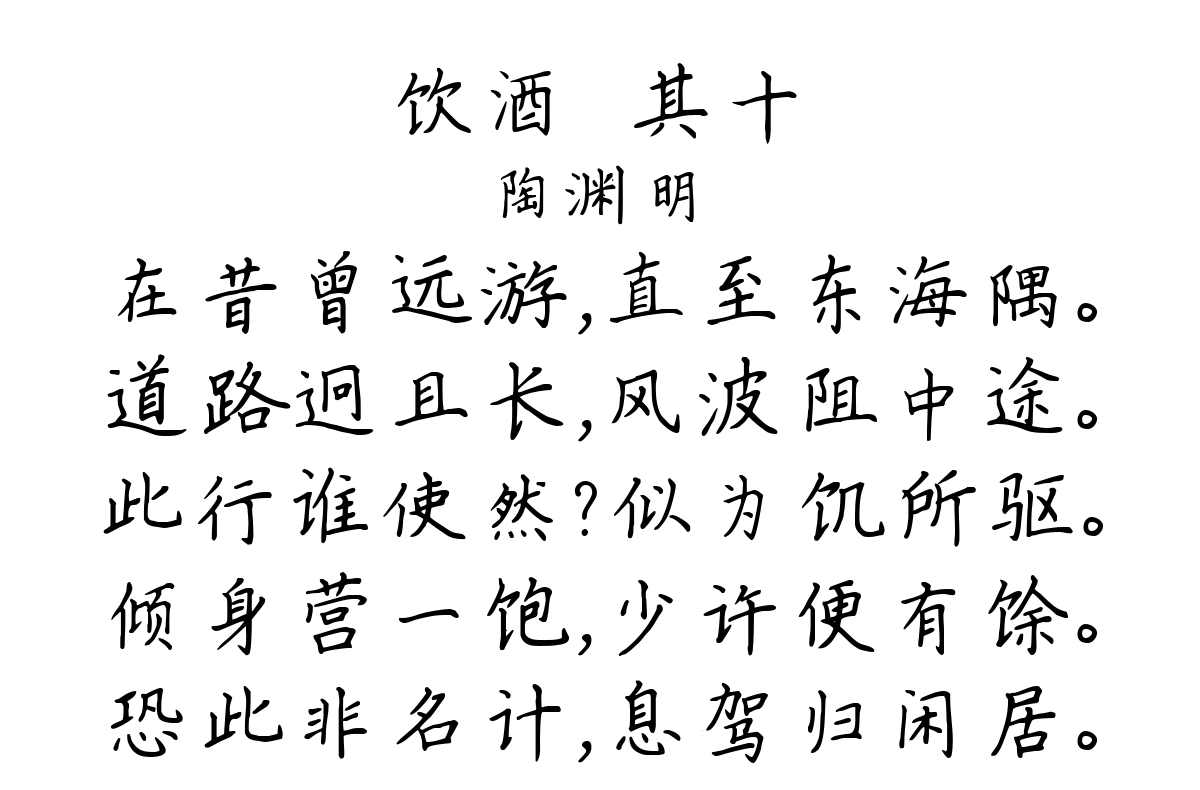 饮酒 其十
陶渊明
在昔曾远游,直至东海隅。
道路迥且长,风波阻中途。
此行谁使然?似为饥所驱。
倾身营一饱,少许便有馀。
恐此非名计,息驾归闲居。